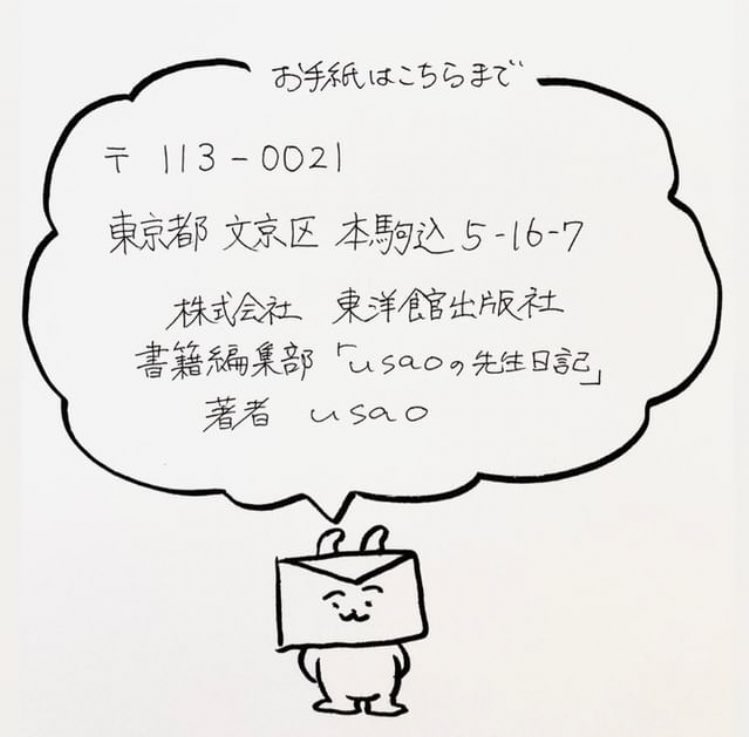 お手紙はこちらまで
〒 113-0021
東京都 文京区 本駒込 5-16-7
株式会社 東洋館出版社
書籍編集部 「usaoの先生日記」
著者 usao